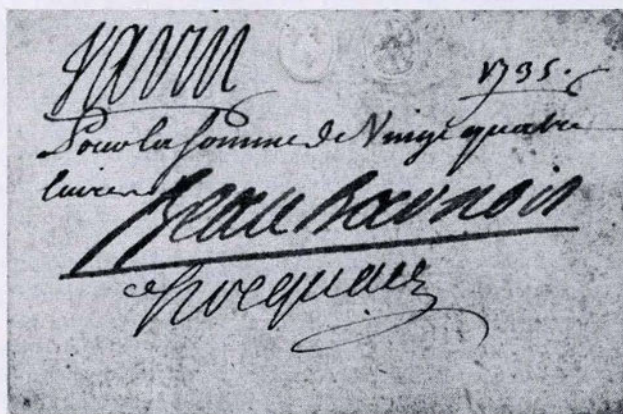 Varin 1735.
Pour la somme de Vingt quatre
livres Beauharnois
Hocquart